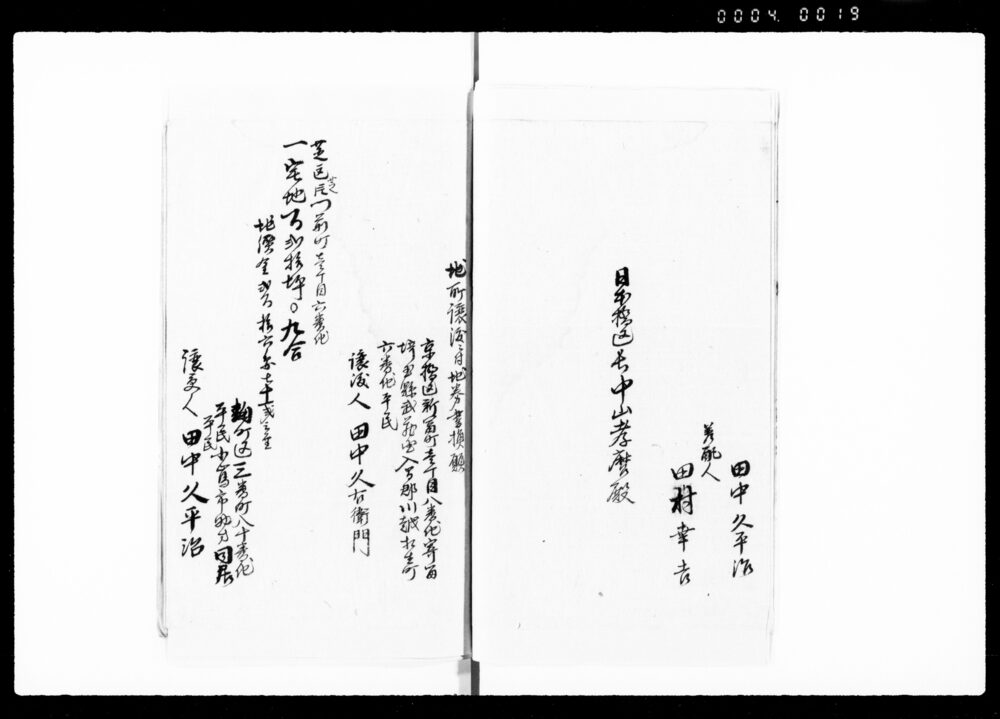 0004 0019
田中久平治
差配人
田村幸吉
日本橋区長中山孝麿殿
地所譲渡ニ付地券書換願
京橋区新富町壱丁目八番地寄留
埼玉縣武蔵国入間郡川越松江町
六番地平民
譲渡人 田中久右衛門
芝区芝門前町壱丁目六番地
一宅地百弐拾坪〇九合
地價金弐百拾六円七十
麹町区三番町八十番地
平民 市助方同居
平民
譲受人 田中久平治